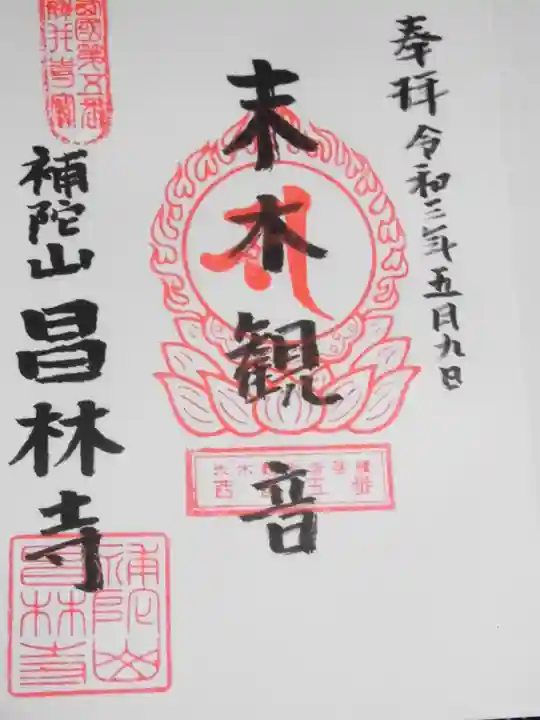 奉拝 令和三年五月九日
末木観音
補陀山 昌林寺
補陀山
昌林寺